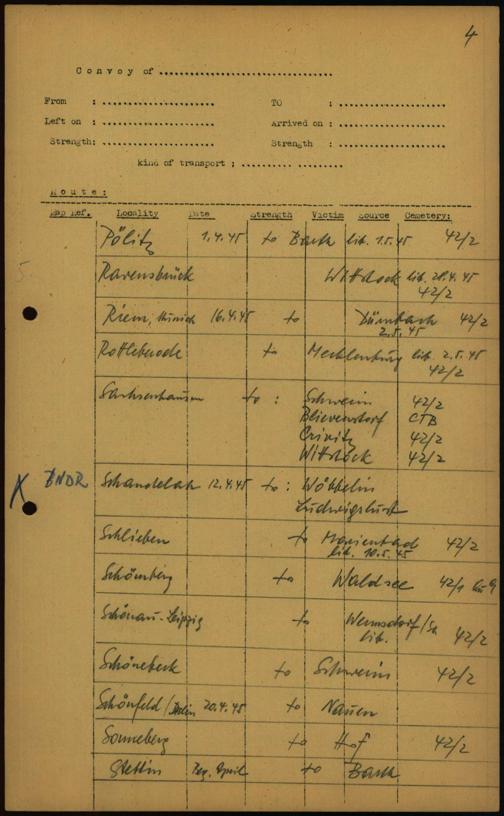 4
Convoy of ................................
From : ..................... TO : ....................
Left on : ..................... Arrived on : ....................
Strength: ..................... Strength : ....................
kind of transport ; ......... .........
Route:
Map Ref. Locality Date Strength Victim Source Cemetery:
Pölitz 1.4.45 to Barth lib. 1.5.45 42/2
Ravensbrück Wittstock lib. 28.4.45
42/2
Riem, Munich 16.4.45 to 42/2
2.5.45
Rottleberode to Mecklenburg lib. 2.5.45
42/2
Sachsenhausen to : Schwerin 42/2
Blievenstorf CTB
Crivitz 42/2
Wittstock 42/2
X BNDR Schandelah 12.4.45 to : Wöbbelin
Ludwigslust
Schlieben to Marienbad 42/2
lib. 10.5.45
Schömberg to Waldsee 42/1
Schönau-Leipzig to Wermsdorf/Sa
lib. 42/2
Schönebeck to Schwerin 42/2
Schönfeld / Berlin 20.4.45 to Nauen
Sonneberg to Hof 42/2
Stettin Beg. April to Barth